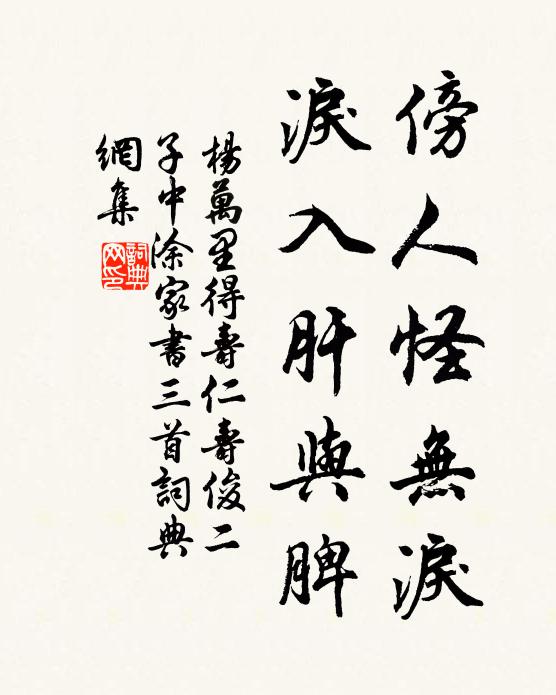 傍人怪無淚
淚入肝與脾
楊萬里得壽仁壽俊二
子中涂家書三首詞典
網集
詞典網印